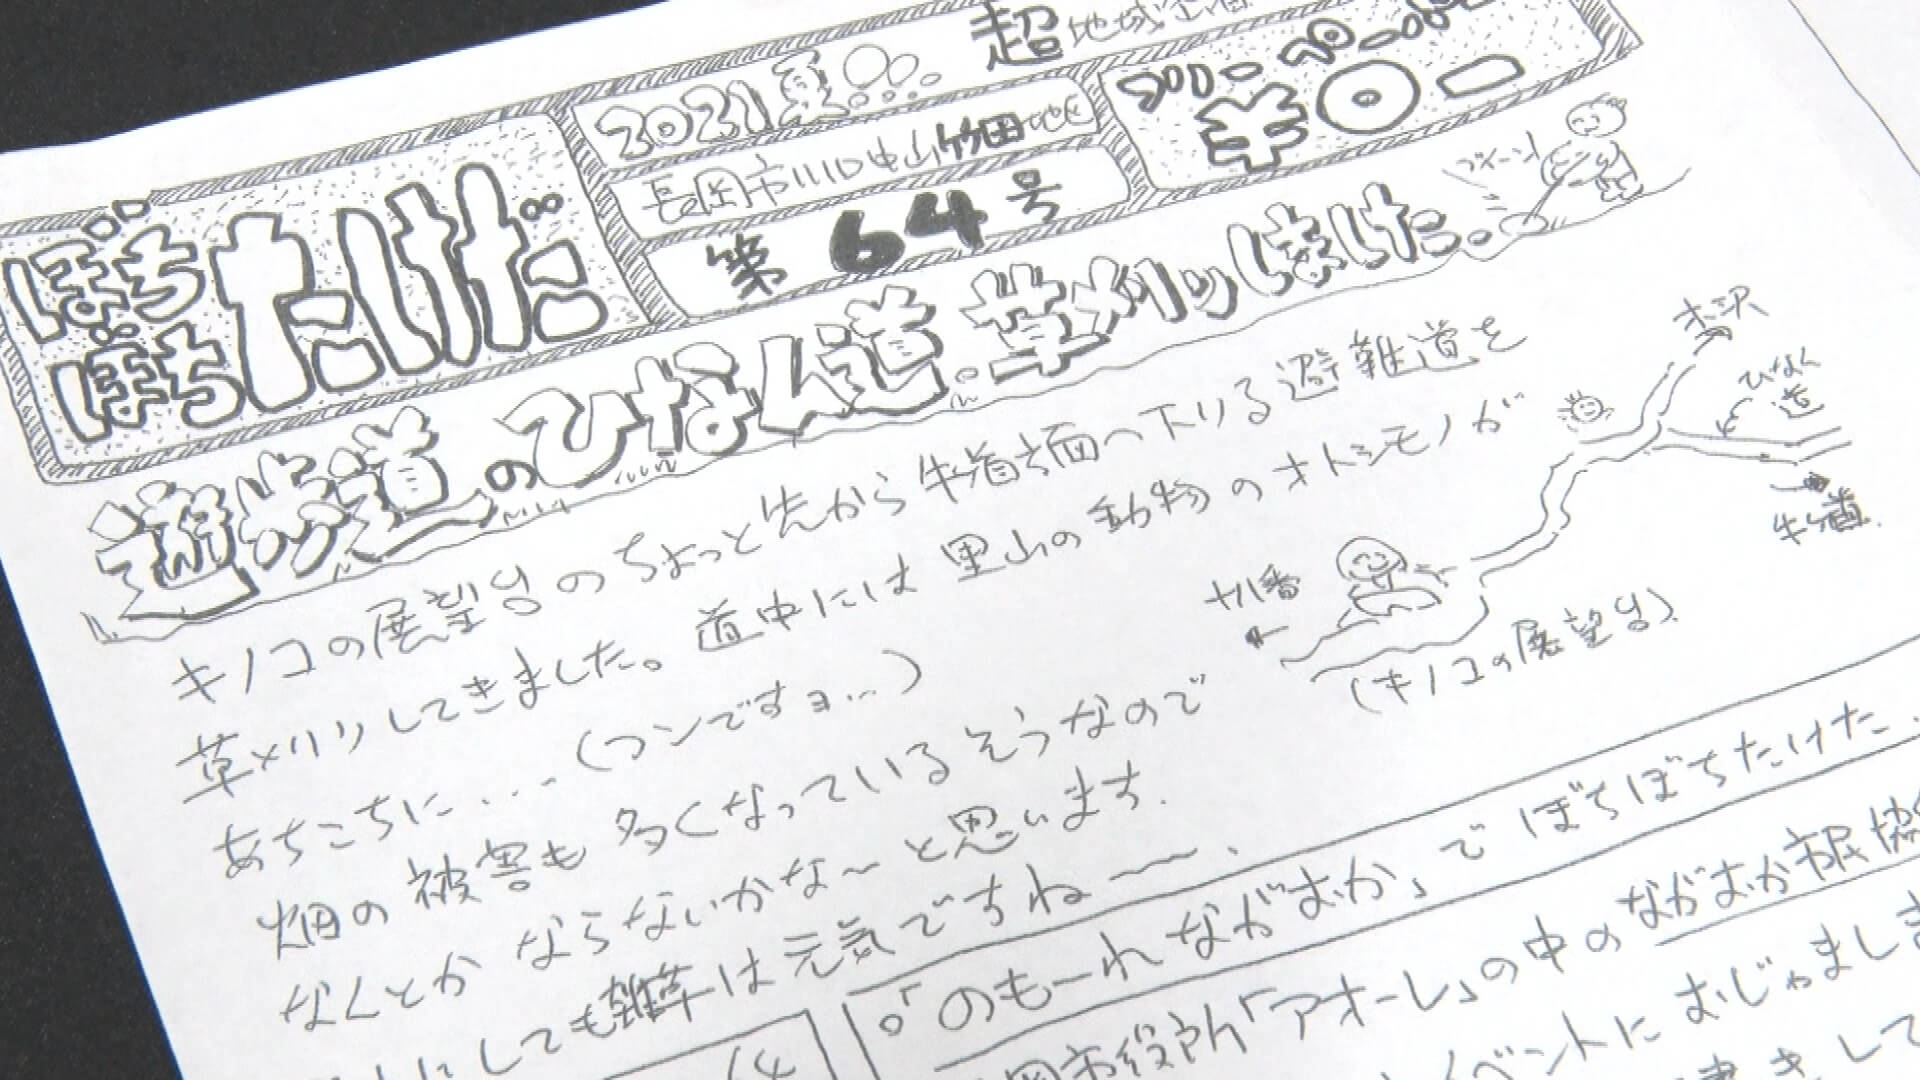 ぼちぼちたけだ
2021夏
超地域
フリーペーパー
¥0-
長岡市川口中山竹田地区
第64号
遊歩道のひなん道。草刈りしましけた。
ブイーン!
キノコの展望台のちょっと先から牛ヶ首方面へ下りる避難道を
草刈りしてきました。道中には里山の動物のオトシモノが
あちこちに‥‥(フンですョ…)
畑の被害も多くなっているそうなので
なんとかならないかな～と思います.
にしても雑草は元気ですね～～.
木沢
ひなん道
牛ヶ首
十八番
(キノコの展望台)
「のもーれながおか」でぼちぼちたけだ
市役所「アオーレ」の中のながおか市民協
イベントにおじゃまし